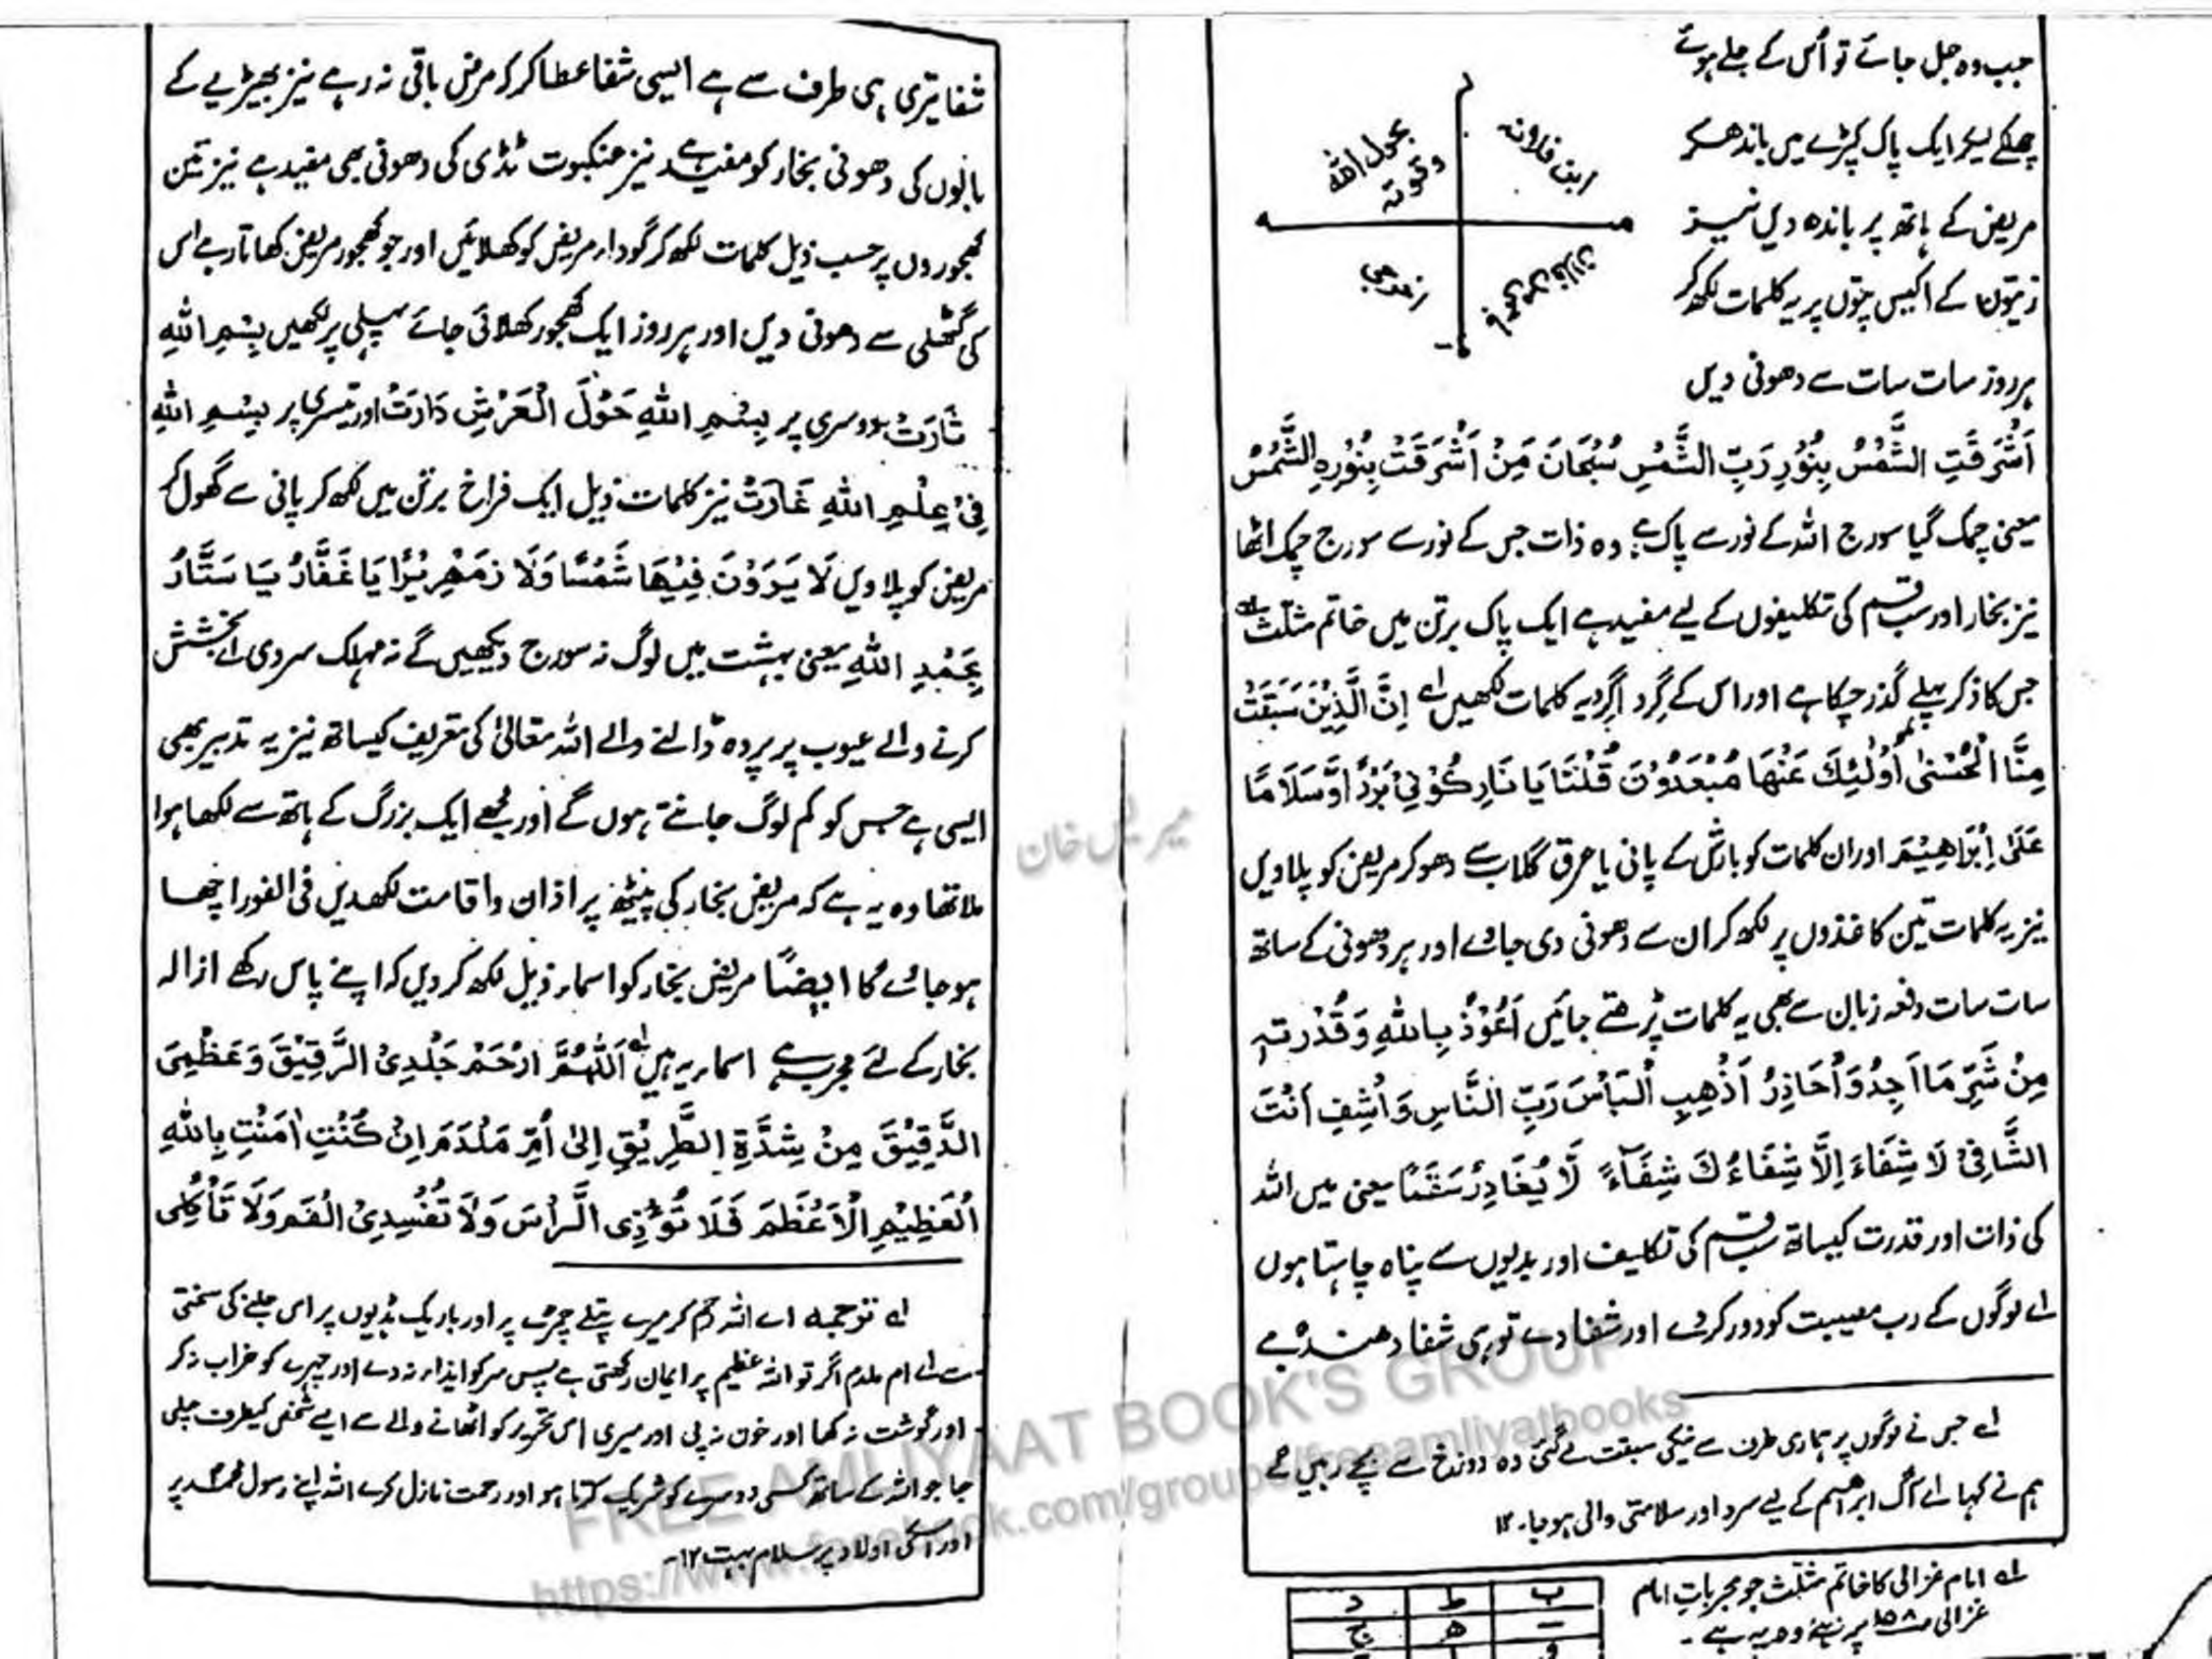 جب وہ جل جائے تو اُس کے جلے ہوئے
چھلکے لیکر ایک پاک کپڑے میں باندھ کر
مریض کے ہاتھ پر باندھ دیں نیز
زیتون کے اکیس پتوں پر یہ کلمات لکھ کر
ہر روز سات سات سے دھونی دیں
بحول اللہ
وقوتہ
ابن فلانہ
اَشْرَقَتِ الشَّمْسُ بِنُوْرِ رَبِّ الشَّمْسِ سُبْحَانَ مَنْ اَشْرَقَتْ بِنُوْرِہِ الشَّمْسُ
یعنی چمک گیا سورج اللہ کے نور سے پاک ہے وہ ذات جس کے نور سے سورج چمک اٹھا
نیز بخار اور سب قسم کی تکلیفوں کے لیے مفید ہے ایک پاک برتن میں خاتم مثلث
جس کا ذکر پہلے گذر چکا ہے اور اس کے گرد اگرد یہ کلمات لکھیں اِنَّ الَّذِیْنَ سَبَقَتْ
مِنَّا الْحُسْنٰی اُولٰئِکَ عَنْھَا مُبْعَدُوْنَ قُلْنَا یَا نَارُ کُوْنِیْ بَرْدًا وَّسَلَامًا
عَلٰی اِبْرَاھِیْمَ اور ان کلمات کو بارش کے پانی یا عرق گلاب سے دھو کر مریض کو پلاویں
نیز یہ کلمات تین کاغذوں پر لکھ کر ان سے دھونی دی جاوے اور ہر دھونی کے ساتھ
سات سات دفعہ زبان سے بھی یہ کلمات پڑھتے جائیں اَعُوْذُ بِاللہِ وَقُدْرَتِہٖ
مِنْ شَرِّ مَا اَجِدُ وَاُحَاذِرُ اَذْھِبِ الْبَاْسَ رَبَّ النَّاسِ وَاشْفِ اَنْتَ
الشَّافِیْ لَا شِفَاءَ اِلَّا شِفَاءُکَ شِفَآءً لَّا یُغَادِرُ سَقَمًا یعنی میں اللہ
کی ذات اور قدرت کیساتھ سب قسم کی تکلیف اور بدیوں سے پناہ چاہتا ہوں
اے لوگوں کے رب مصیبت کو دور کر دے اور شفا دے تو ہی شفا دھندہ ہے
لے جس نے لوگوں پر ہماری طرف سے نیکی سبقت لے گئی وہ دوزخ سے بچے رہیں گے
ہم نے کہا اے آگ ابراھیم کے لیے سرد اور سلامتی والی ہو جا۔ ۱۲
امام غزالی کا خاتم مثلث جو مجربات امام
غزالی ص۱۵۸ پر
ب ط د
ھ ج
و
شفا تیری ہی طرف سے ہے ایسی شفا عطا کر کہ مرض باقی نہ رہے نیز بھیڑیے کے
بالوں کی دھونی بخار کو مفید ہے نیز عنکبوت ٹڈی کی دھونی بھی مفید ہے نیز تین
کھجوروں پر حسب ذیل کلمات لکھ کر گودا مریض کو کھلائیں اور جو کھجور مریض کھاتا رہے اس
کی گٹھلی سے دھونی دیں اور ہر روز ایک کھجور کھلائی جائے پہلی پر لکھیں بِسْمِ اللہِ
ثَارَتْ دوسری پر بِسْمِ اللہِ حَوْلَ الْعَرْشِ دَارَتْ اور تیسری پر بِسْمِ اللہِ
فِیْ عِلْمِ اللہِ غَارَتْ نیز کلمات ذیل ایک فراخ برتن میں لکھ کر پانی سے گھول کر
مریض کو پلاویں لَا یَرَوْنَ فِیْھَا شَمْسًا وَلَا زَمْھَرِیْرًا یَا غَفَّارُ یَا سَتَّارُ
بِحَمْدِ اللہِ یعنی بہشت میں لوگ نہ سورج دیکھیں گے نہ مہلک سردی اے بخشش
کرنے والے عیوب پر پردہ ڈالنے والے اللہ تعالیٰ کی تعریف کیساتھ نیز یہ تدبیر بھی
ایسی ہے جس کو کم لوگ جانتے ہوں گے اور مجھے ایک بزرگ کے ہاتھ سے لکھا ہوا
ملا تھا وہ یہ ہے کہ مریض بخار کی پیٹھ پر اذان و اقامت لکھدیں فی الفور اچھا
ہو جائے گا ایضًا مریض بخار کو اسماء ذیل لکھ کر دیں کہ اپنے پاس رکھے ازالہ
بخار کے لئے مجرب ہے اسماء یہ ہیں اَللّٰھُمَّ ارْحَمْ جَلْدِیَ الرَّقِیْقَ وَعَظْمِیَ
الدَّقِیْقَ مِنْ شِدَّۃِ الطَّرِیْقِ اِلٰی اُمِّ مَلْدَمَ اِنْ کُنْتِ اٰمَنْتِ بِاللہِ
الْعَظِیْمِ الْاَعْظَمَ فَلَا تُؤْذِی الرَّاْسَ وَلَا تُفْسِدِی الْفَمَ وَلَا تَاْکُلِی
لے ترجمہ اے اللہ رحم کر میرے پتلے چمڑے پر اور باریک ہڈیوں پر اس جلنے کی سختی
سے اے ام ملدم اگر تو اللہ عظیم پر ایمان رکھتی ہے پس سر کو ایذاء نہ دے اور چہرے کو خراب نہ کر
اور گوشت نہ کھا اور خون نہ پی اور میری اس تحریر کو اٹھانے والے سے ایسے شخص کیطرف چلی
جا جو اللہ کے ساتھ کسی دوسرے کو شریک کرتا ہو اور رحمت نازل کرے اللہ اپنے رسول محمد پر
اور اسکی اولاد پر سلام بہت ۱۲۔
FREE AMLIYAAT BOOK'S GROUP
https://www.facebook.com/groups/freeamliyatbooks